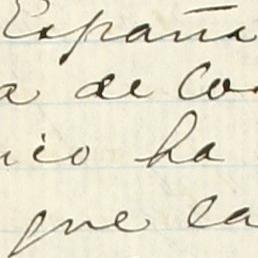 España
a de Co
ico ha
que la